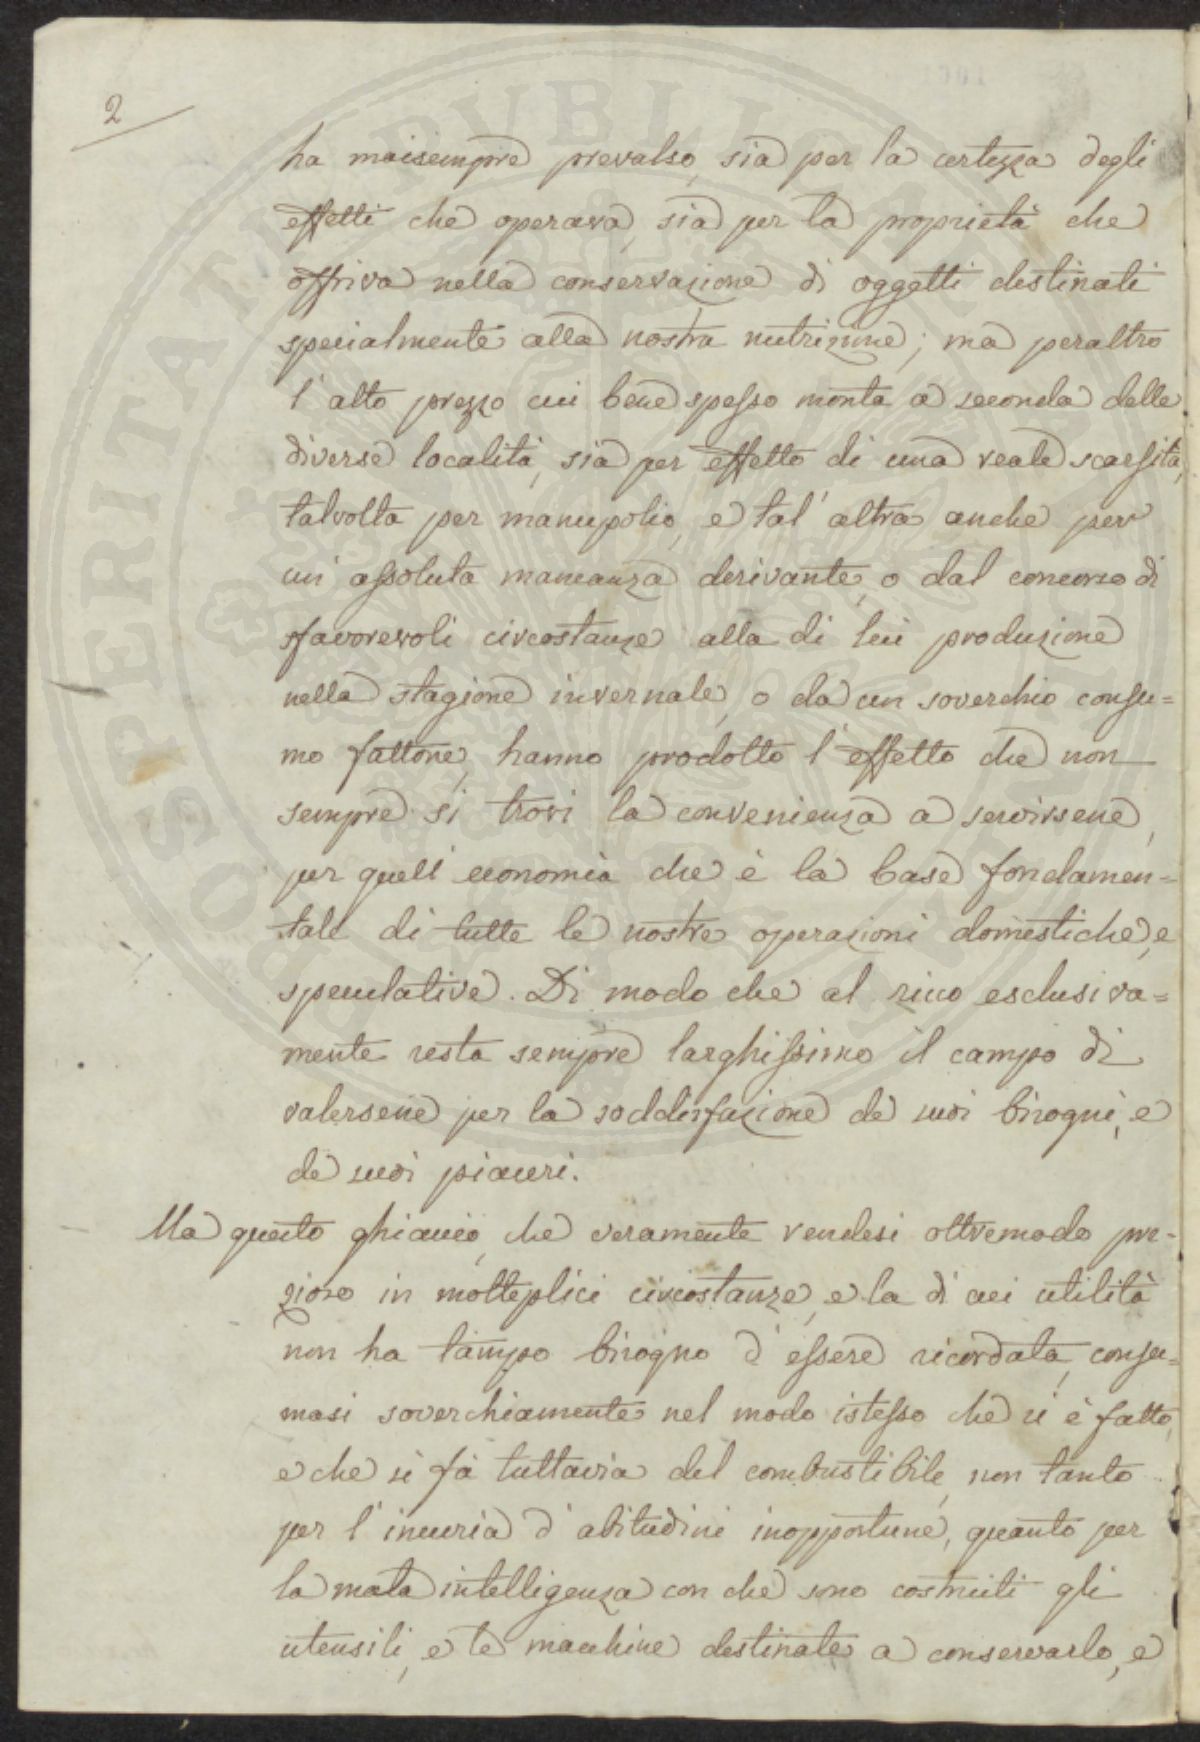 2
ha maisempre prevalso, sia per la certezza degli
effetti che operava, sia per la proprietà che
offriva nella conservazione di oggetti destinati
specialmente alla nostra nutrizione; ma peraltro
l'alto prezzo cui bene spesso monta a seconda delle
diverse località, sia per effetto di una reale scarsità,
talvolta per manupolio, e tal'altra anche per
un'assoluta mancanza derivante, o dal concorso di
sfavorevoli circostanze alla di lui produzione
nella stagione invernale, o da un soverchio consu=
mo fattone, hanno prodotto l'effetto che non
sempre si trovi la convenienza a servirsene,
per quell'economia che è la base fondamen=
tale di tutte le nostre operazioni domestiche, e
speculative. Di modo che al ricco esclusiva=
mente resta sempre larghissimo il campo di
valersene per la soddisfazione de suoi bisogni, e
de suoi piaceri.
Ma questo ghiaccio, che veramente rendesi oltremodo pre=
zioso in molteplici circostanze, e la di cui utilità
non ha tampo bisogno d'essere ricordata, consu=
masi soverchiamente nel modo istesso che si è fatto,
e che si fà tuttavia del combustibile, non tanto
per l'incuria d'abitudini inopportune, quanto per
la mala intelligenza con che sono costruiti gli
utensili, e le macchine destinate a conservarlo, e
PROSPERITATI PUBLICAE